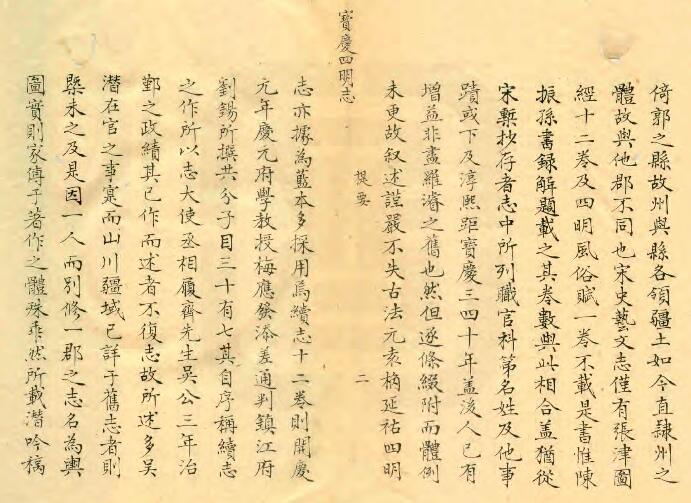 倚郭之縣故州與縣各領疆土如今直隸州之
體故與他郡不同也宋史藝文志僅有張津圖
經十二卷及四明風俗賦一卷不載是書惟陳
振孫書録解題載之其卷數與此相合盖猶從
宋槧抄存者志中所列職官科第名姓及他事
蹟或下及淳熙距寶慶三四十年盖後人已有
增益非盡羅濬之舊也然但逐條綴附而體例
未更故叙述謹嚴不失古法元袁桷延祐四明
寶慶四明志
提要
二
志亦據為藍本多採用焉續志十二卷則開慶
元年慶元府學教授梅應發添差通判鎮江府
劉錫所撰共分子目三十有七其自序稱續志
之作所以志大使丞相履齋先生吳公三年治
鄞之政績其已作而述者不復志故所述多吳
潛在官之事寔而山川疆域已詳于舊志者則
槩未之及是因一人而别修一郡之志名為輿
圖實則家傳于著作之體殊乖然所載潛吟稿